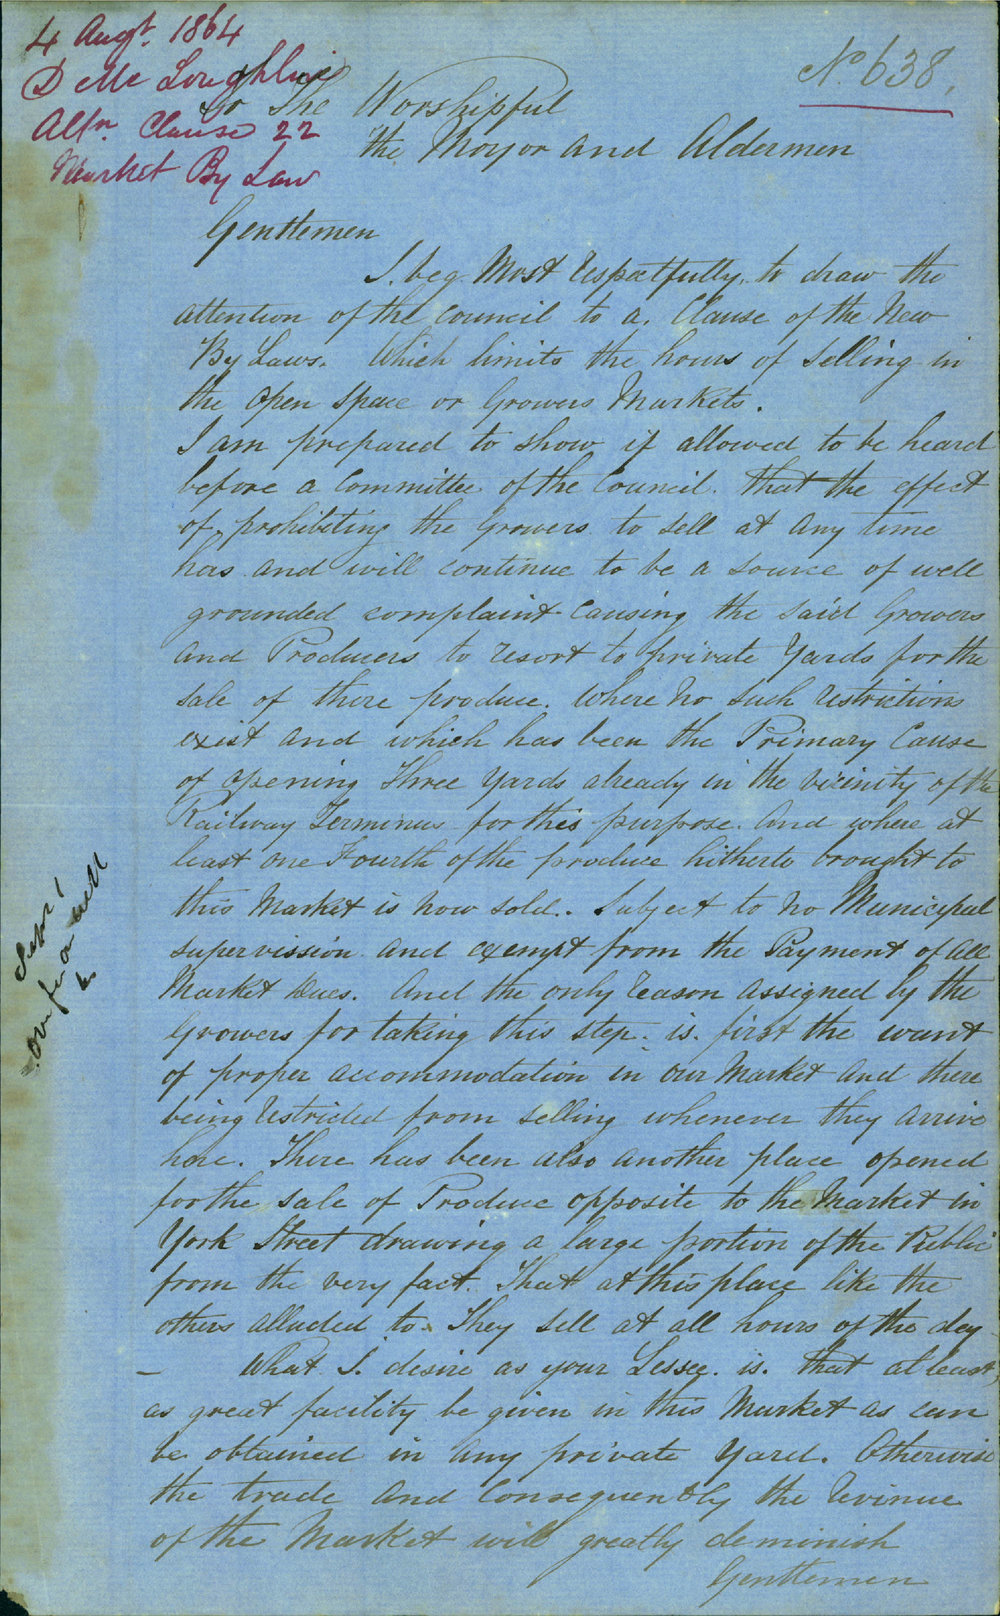 4 Augt. 1864
D McLoughlin
Altn. Clause 22
Market By Law
No 638.
To The Worshipful
the Mayor and Aldermen
Gentlemen
I beg Most respatfully to draw the
attention of the Council to a. Clause of the New
By Laws. Which limits the hours of Selling in
the open space or Growers Markets.
I am prepared to show if allowed to be heard
before a Committee of the Council. that the effect
of prohibiting the Growers to sell at any time
has and will continue to be a source of well
grounded complaint causing the said Growers
and Producers to resort to private Yards for the
sale of there produce. Where no such restrictions
exist and which has been the Primary Cause
of opening three Yards already in the vicinity of the
Railway Terminus for this purpose. And where at
least one Fourth of the produce hitherto brought to
this Market is now sold.. Subject to no Municipal
supervission and exempt from the Payment of all
Market Dues. And the only reason assigned by the
Growers for taking this step. is. first the want
of proper accommodation in our Market and there
being restricted from selling whenever they arrive
here. There has been also another place opened
for the sale of Produce opposite to the Market in
York Street drawing a large portion of the Public
from the very fact. That at this place like the
others alluded to. They sell at all hours of the day
- What I. desire as your Lessee. is. that at least,
as great facility be given in this Market as can
be obtained in any private Yard. Otherwise
the trade and Consequently the revinue
of the Market will greatly deminish
Gentlemen